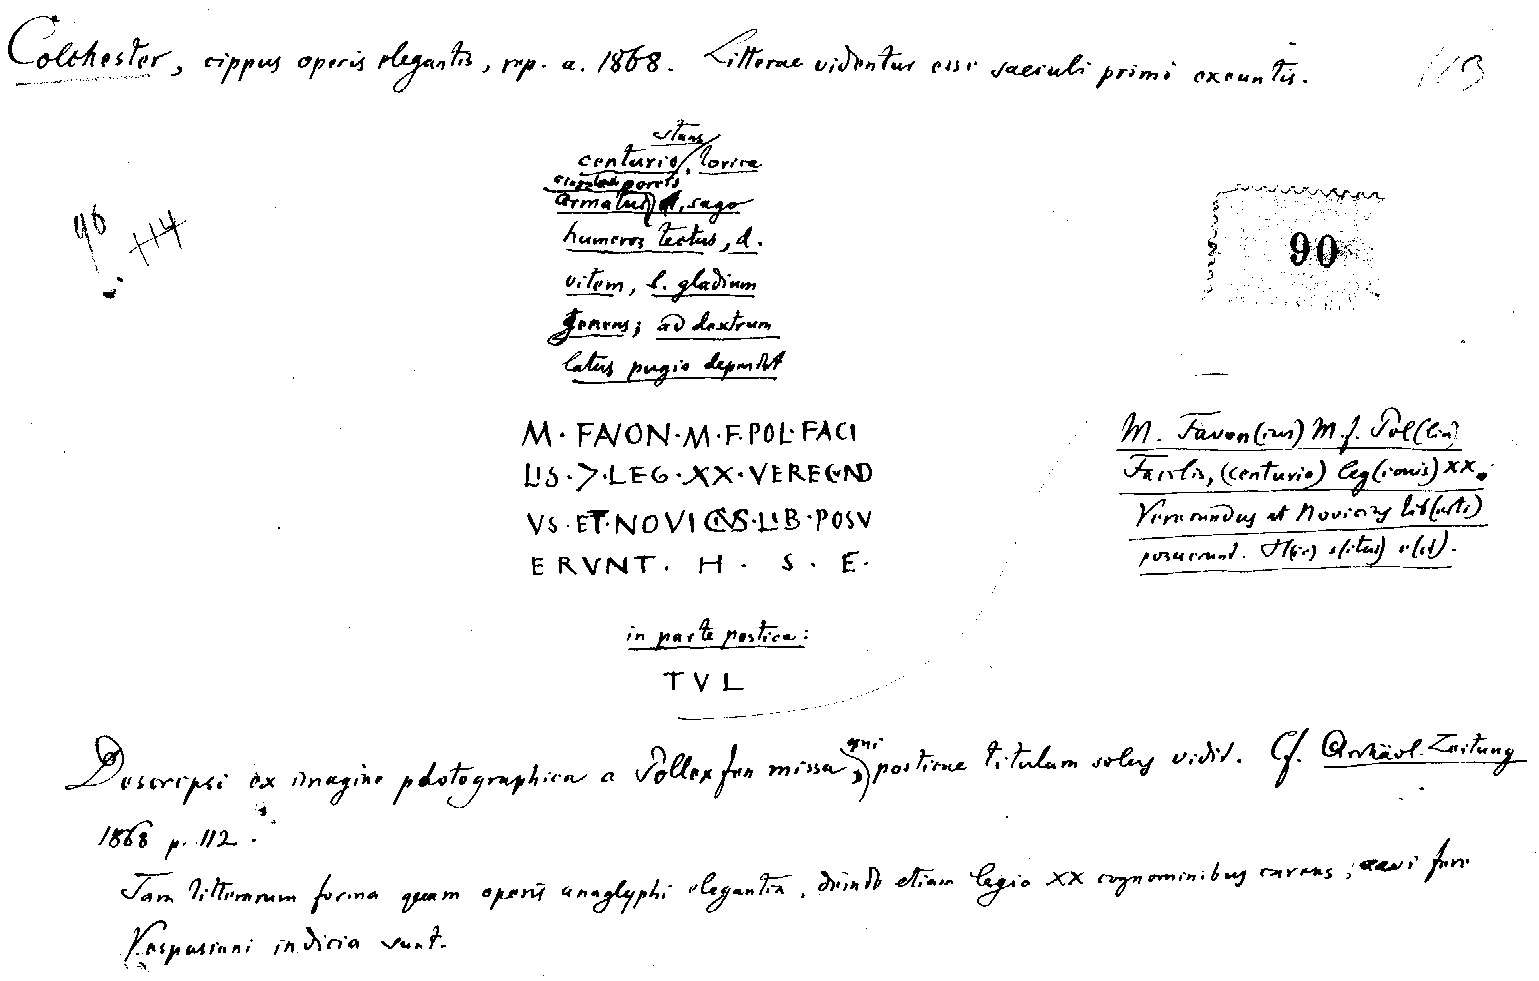 Colchester, cippus operis elegantis, rep. a. 1868. Litterae videntur esse saeculi primi exeuntis.
113
stans
centurio, lorica
armatus, sago
humeros tectus, d.
vitem, l. gladium
tenens; ad dextrum
latus pugio dependet
96
114
90
M · FAVON · M · F · POL · FACI
LIS · > · LEG · XX · VERECVND
VS · ET · NOVICIVS · LIB · POSV
ERVNT · H · S · E ·
M. Favon(ius) M. f. Pol(lia)
Facilis, (centurio) leg(ionis) XX.
Verecundus et Novicius lib(erti)
posuerunt. H(ic) s(itus) e(st).
in parte postica:
TVL
qui
Descripsi ex imagine photographica a Pollexfen missa posticae titulum solus vidit. Cf. Archäol. Zeitung
1868 p. 112.
Tam litterarum forma quam operis anaglyphi elegantia, deinde etiam legio XX cognominibus carens, aevi fere
Vespasiani indicia sunt.